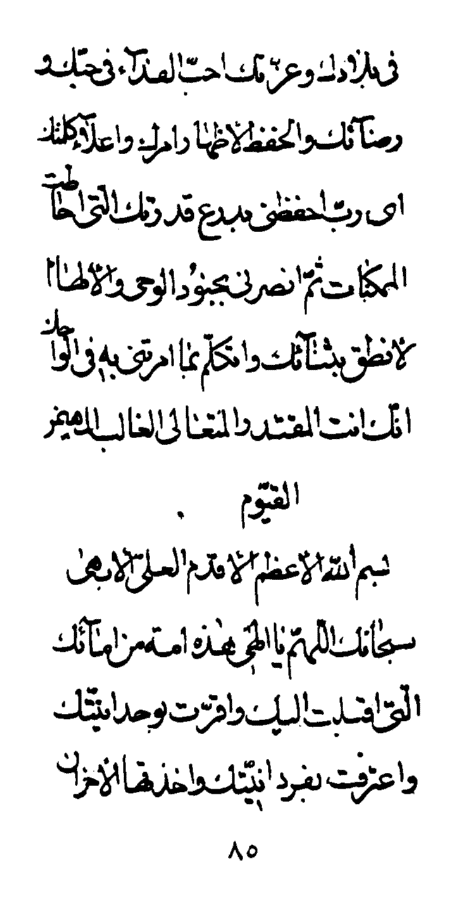 فی بلادك وعزتك احبّ الفدآء فی حبّك و
رضآئك والحفظ لاظهار امرك واعلآء كلمتك
ای ربّ احفظنی بدرع قدرتك الّتی احاطت
الممكنات ثمّ انصرنی بجنود الوحی والالهام
لانطق بثنآئك واتكلّم بما امرتنی به فی الواحك
انّك انت المقتدر المتعالی الغالب المهیمن
القیّوم
بسم اللّه الاعظم الاقدم العلیّ الابهی
سبحانك اللّهمّ یا الهی هذه امة من امآئك
الّتی اقبلت الیك واقرّت بوحدانیّتك
واعترفت بفردانیّتك واخذتها الاحزان
٨٥